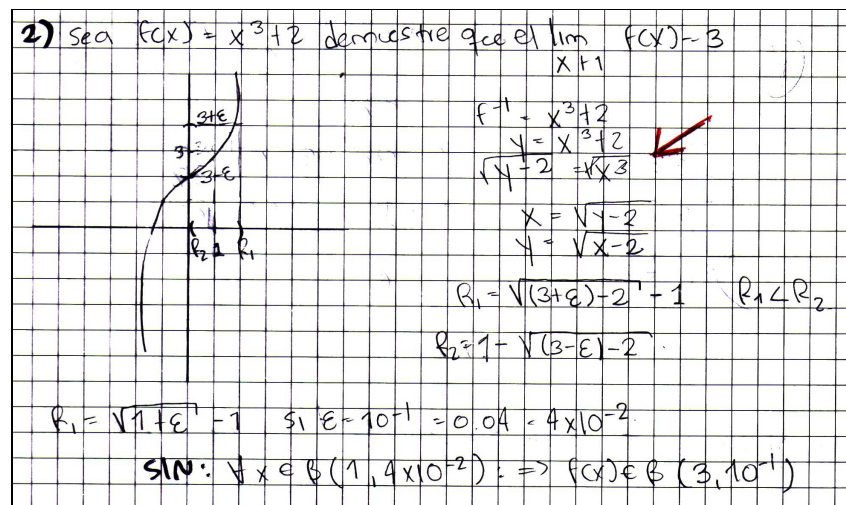 2) Sea f(x) = x³+2 demuestre que el lim f(x) - 3
x → 1
3+ε
3
3-ε
R₂ 1 R₁
f⁻¹ = x³+2
y = x³+2
√y-2 = √x³
x = √y-2
y = √x-2
R₁ = √(3+ε)-2 - 1 R₁ < R₂
R₂ = 1 - √(3-ε)-2
R₁ = √1+ε - 1 si ε = 10⁻¹ = 0.04 = 4x10⁻²
SIN: ∀ x ∈ B(1, 4x10⁻²): => f(x) ∈ B(3, 10⁻¹)